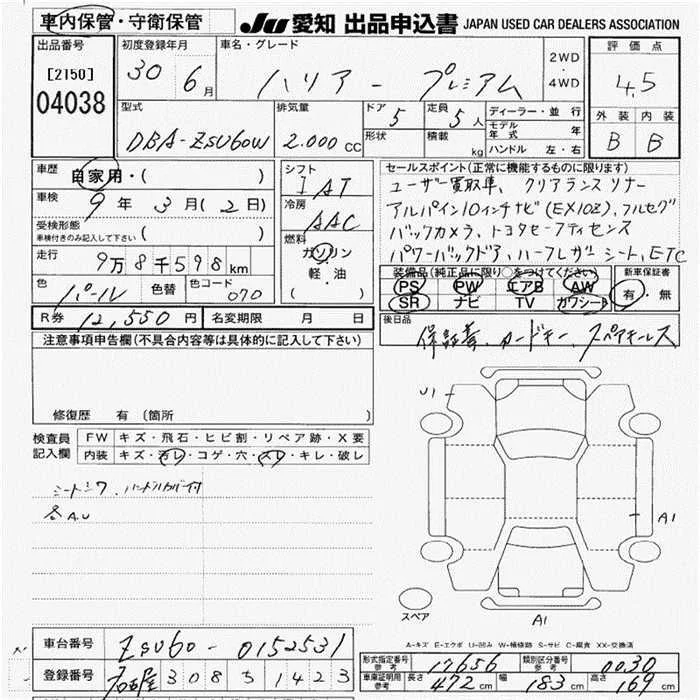 車内保管・守衛保管
JU 愛知 出品申込書 JAPAN USED CAR DEALERS ASSOCIATION
出品番号
[2150]
04038
初度登録年月
30 6月
車名・グレード
ハリアー プレミアム
2WD
・
4WD
評価点
4.5
外装 内装
B B
型式
DBA-ZSU60W
排気量
2.000 CC
ドア 5
形状
定員 5人
積載 kg
ディーラー・並行
モデル年式 年
ハンドル 左・右
車歴
自家用・( )
車検
9年 3月(2日)
受検形態
車検付きのみ記入して下さい ( )
走行
9万8千598km
色 パール 色替 色コード 070
シフト
IAT
冷房
AAC
燃料
ガソリン
軽・油
( )
セールスポイント(正常に機能するものに限ります)
ユーザー買取車、クリアランスソナー
アルパイン10インチナビ(EX10Z)、フルセグ
バックカメラ、トヨタセーフティセンス
パワーバックドア、ハーフレザーシート、ETC
装備品(純正品に限り○をつけてください)
PS PW エアB AW
SR ナビ TV カワシート
新車保証書
有・無
R券 12,550円 名変期限 月 日
後日品
保証書、カードキー、スペアキーレス
注意事項申告欄(不具合内容等は具体的に記入して下さい)
修復歴 有(箇所 )
検査員記入欄
FW キズ・飛石・ヒビ割・リペア跡・X要
内装 キズ・汚レ・コゲ・穴・スレ・キレ・破レ
シートシワ、ハンドルカバー付
各A.U
U1
A1
A1
スペア
A-キズ E-エクボ U-凹み W-補修跡 S-サビ C-腐食 XX-交換済
車台番号 ZSU60-0152531
登録番号 名古屋 308 ス 1423
形式指定番号 参考 17656 類別区分番号 参考 0030
車庫証明用 参考 長さ 472cm 幅 183cm 高さ 169cm